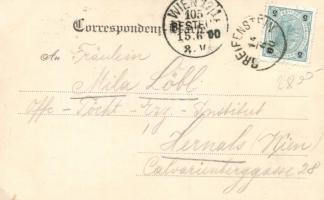 Correspondenz-
WIEN 9/1
105
BESTELLT
15.6 00
8.V.
GREIFENSTEIN
14
00
An Fräulein
Mila Löbl
Off.-Töcht-Erz.-Institut
Hernals (Wien)
Calvarienberggasse 28
2895